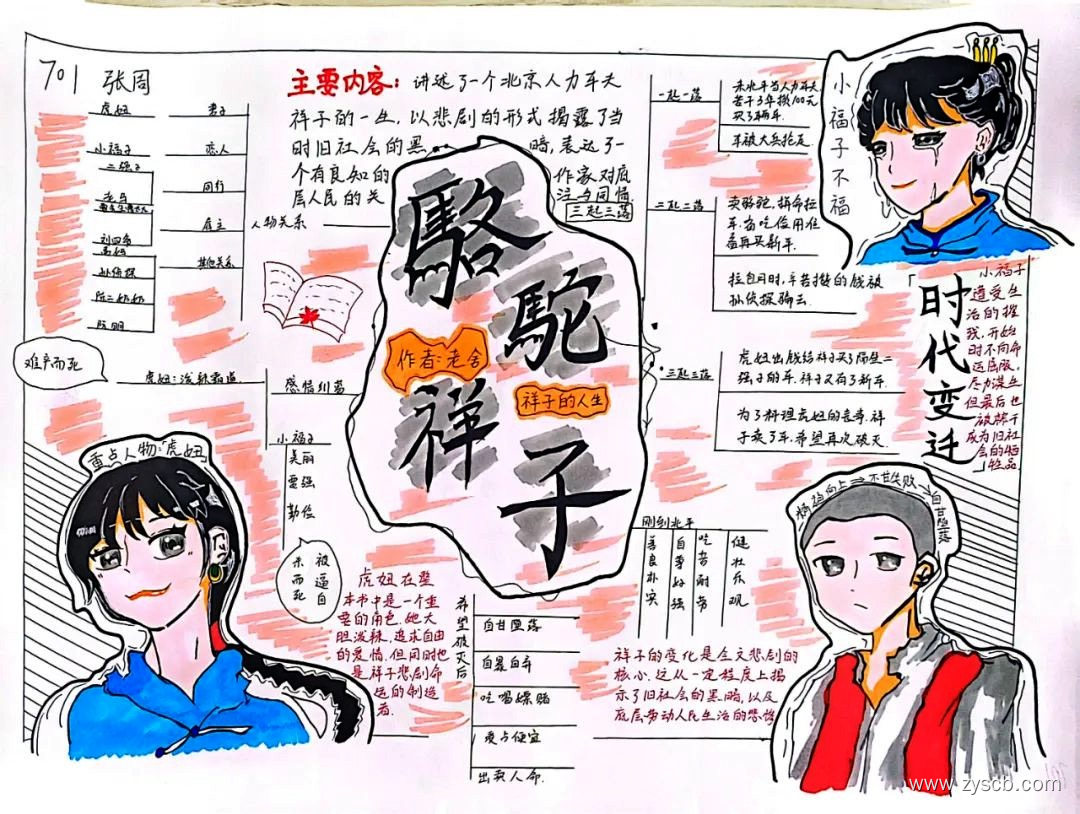 701 张周
主要内容：讲述了一个北京人力车夫
祥子的一生，以悲剧的形式揭露了当
时旧社会的黑暗，表达了一
个有良知的作家对底
层人民的关注与同情
虎妞 妻子
小福子 恋人
二强子
同行
老马
雇主
刘四爷
高妈
其他关系
孙侦探
阮二奶奶
阮明
人物关系
骆驼
祥子
作者：老舍
祥子的人生
三起三落
一起一落
来北平当人力车夫
苦干3年攒100元
买了辆车
车被大兵抢走
二起二落
卖骆驼，拼命拉
车，省吃俭用准
备再买新车
拉包月时，辛苦攒的钱被
孙侦探骗去
三起三落
虎妞出钱给祥子买了隔壁二
强子的车，祥子又有了新车
为了料理虎妞的丧事，祥
子卖了车，希望再次破灭
小福子不福
「时代变迁」
小福子
遭受生
活的摧
残，开始
时不向命
运屈服，
尽力谋生
但最后也
被榨干
成为旧社
会的牺
牲品
难产而死
虎妞：泼辣霸道
感情纠葛
小福子
美丽
要强
勤俭
被逼自
杀而死
重点人物：虎妞
虎妞在整
本书中是一个重
要的角色，她大
胆泼辣，追求自由
的爱情，但同时也
是祥子悲剧命
运的制造
者
希望破灭后
自甘堕落
自暴自弃
吃喝嫖赌
爱占便宜
出卖人命
刚到北平
善良朴实
自尊好强
吃苦耐劳
健壮乐观
祥子的变化是全文悲剧的
核心，这从一定程度上揭
示了旧社会的黑暗，以及
底层劳动人民生活的悲惨
积极向上⇒不甘失败→自甘堕落
www.zyscb.com